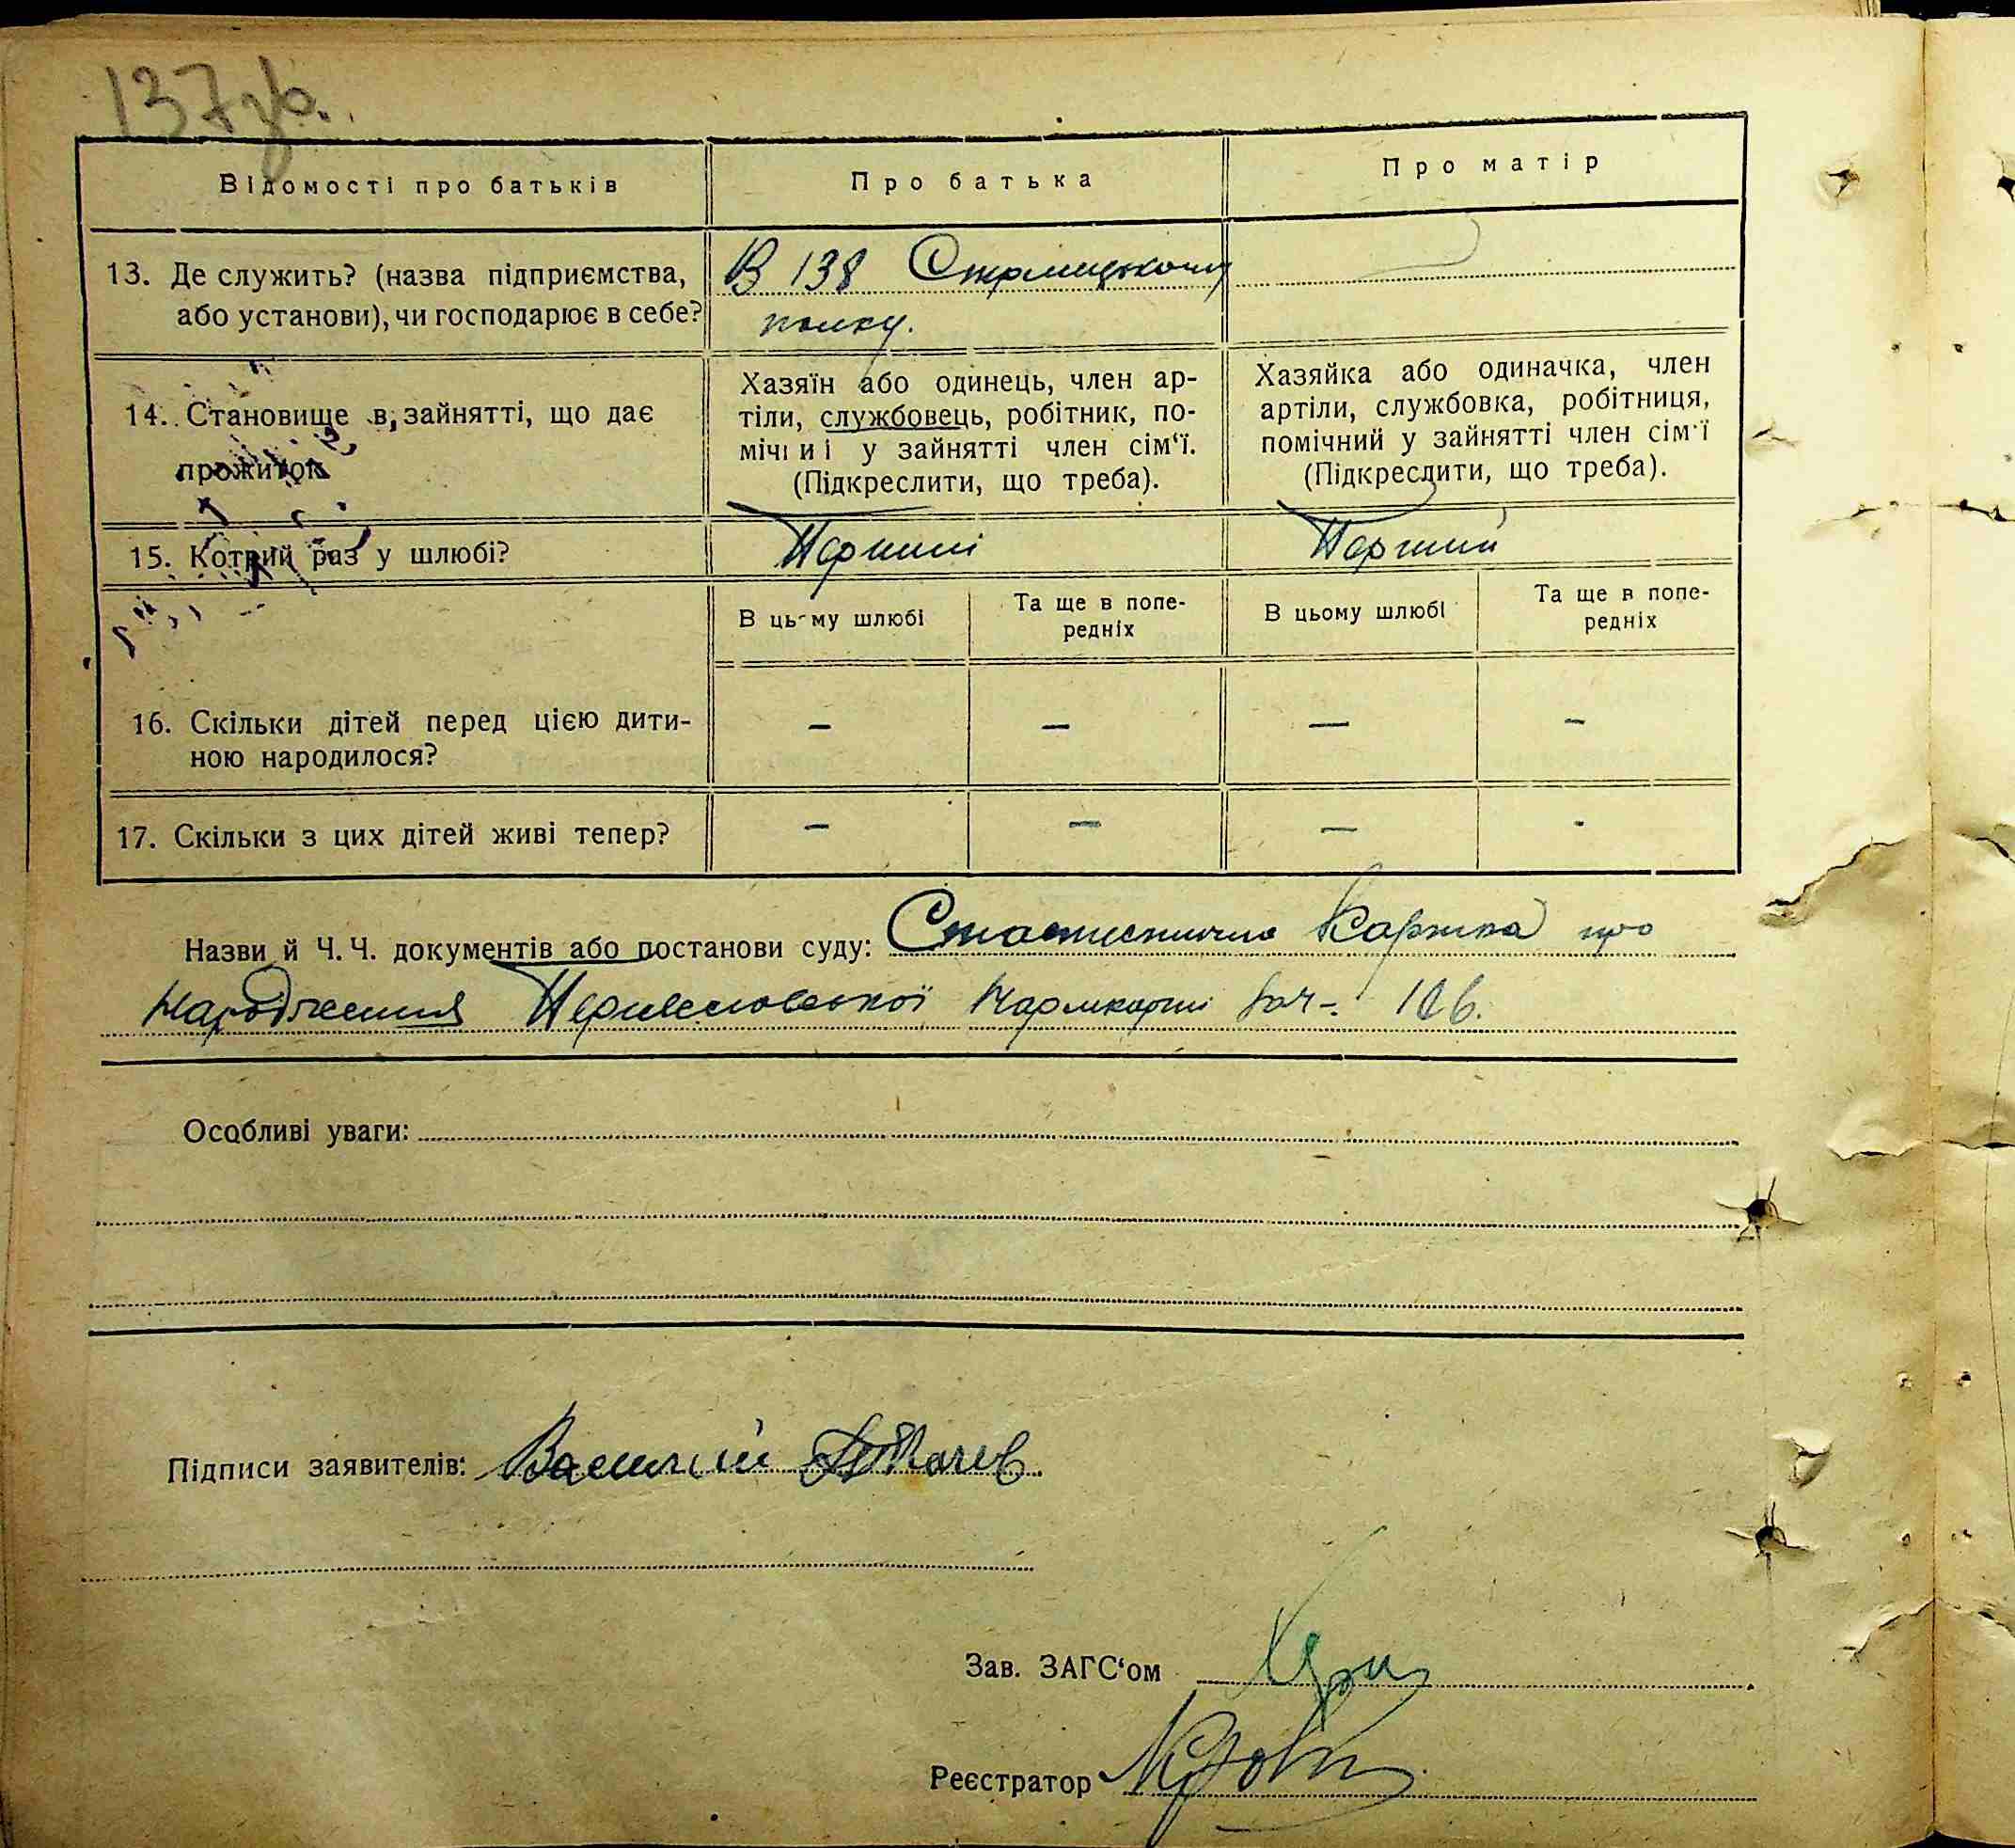 137 зв.
Відомості про батьків
Про батька
Про матір
13. Де служить? (назва підприємства,
або установи), чи господарює в себе?
В 138 Стрілецькому
полку.
14. Становище в зайнятті, що дає
прожиток
Хазяїн або одинець, член ар-
тіли, службовець, робітник, по-
мічниі у зайнятті член сім'ї.
(Підкреслити, що треба).
Хазяйка або одиначка, член
артіли, службовка, робітниця,
помічний у зайнятті член сім'ї
(Підкреслити, що треба).
15. Котрий раз у шлюбі?
Перший
Перший
В цьому шлюбі
Та ще в попе-
редніх
В цьому шлюбі
Та ще в попе-
редніх
16. Скільки дітей перед цією дити-
ною народилося?
– – — –
17. Скільки з цих дітей живі тепер?
– — —
Назви й Ч. Ч. документів або постанови суду: Статистична Картка про
Народження
Особливі уваги:
Підписи заявителів: Василий
Зав. ЗАГС'ом
Реєстратор